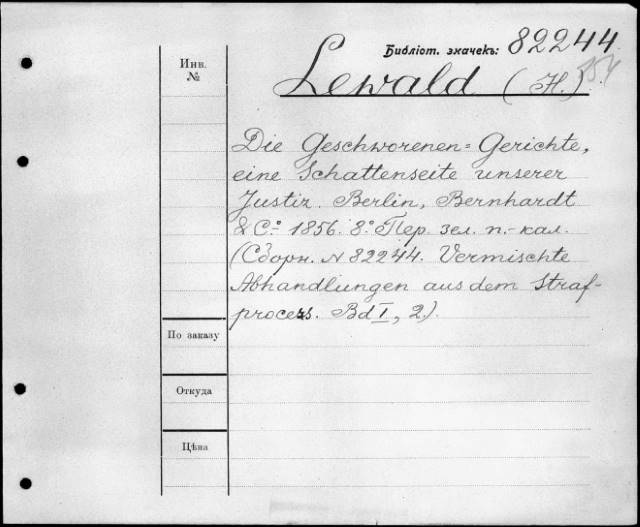 Библіот. значекъ: 82244
Инв.
№
Lewald (H.)
Die Geschworenen=Gerichte,
eine Schattenseite unserer
Justiz. Berlin, Bernhardt
& Cº 1856. 8º Пер. зел. п.-кал.
(Сборн. N 82244. Vermischte
Abhandlungen aus dem Straf-
process. Bd I, 2.).
По заказу
Откуда
Цѣна